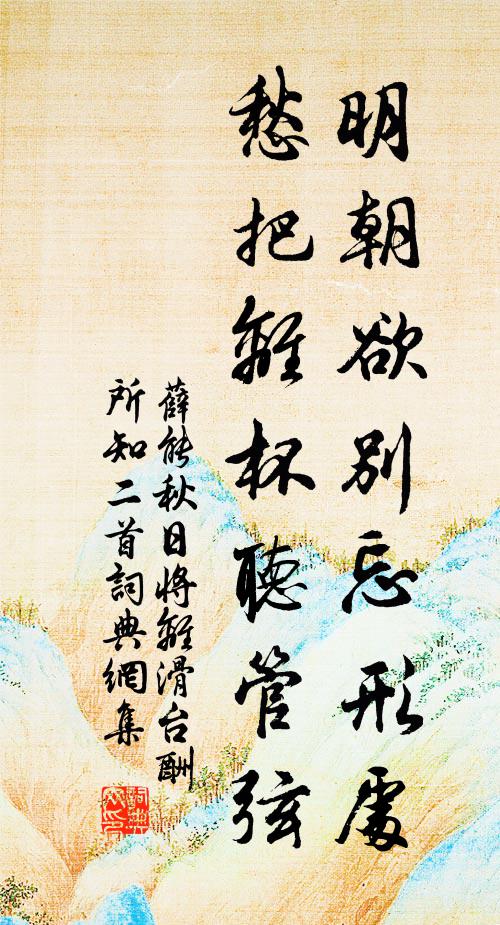 明朝欲別忘形處
愁把離杯聽管弦
薛能秋日將離滑台酬
所知二首詞典網集